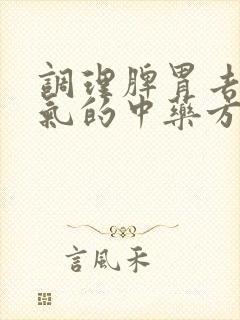 調理脾胃去
氣的中藥方
言風禾